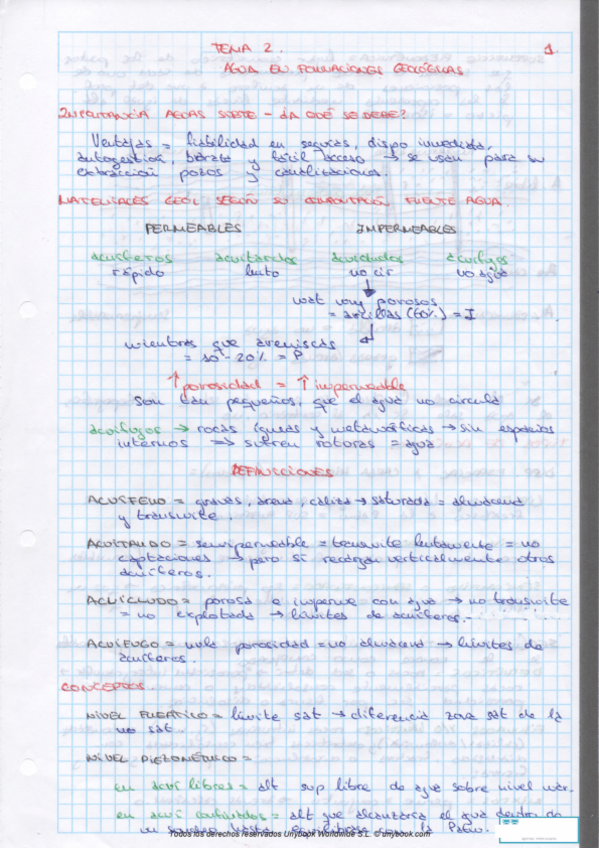 TEMA 2.
1.
AGUA EN FORMACIONES GEOLÓGICAS
IMPORTANCIA AGUAS SUBTE - ¿A QUÉ SE DEBE?
Ventajas = fiabilidad en sequías, dispo inmediata,
autogestión, barata y fácil acceso → se usan para su
extracción pozos y canalizaciones.
MATERIALES GEOL SEGÚN SU COMPORTACIÓN FUENTE AGUA.
PERMEABLES IMPERMEABLES
acuíferos acuitardos acuicludos acuífugos
rápido lento no cir no agua
mat muy porosos
= arcillas (60%) = I
mientras que areniscas
= 10 - 20% = P
↑ porosidad = ↑ impermeable
Son tan pequeños, que el agua no circula
acuífugos → rocas ígneas y metamórficas → sin espacios
internos => sufren roturas = agua
DEFINICIONES
ACUÍFERO = gravas, arena, caliza → saturada = almacena
y transmite.
ACUITARDO = semipermeable = transmite lentamente = no
captaciones → pero sí recarga verticalmente otros
acuíferos.
ACUICLUDO = porosa e imperme con agua → no transmite
= no explotada → límites de acuíferos.
ACUÍFUGO = nula porosidad = no almacena → límites de
acuíferos.
CONCEPTOS.
NIVEL FREÁTICO = límite sat → diferencia zona sat de la
no sat.
NIVEL PIEZOMÉTRICO =
en acuí libres = alt sup libre de agua sobre nivel mar.
en acuí confinados = alt que alcanzaría el agua dentro de
un sondeo hasta equilibrarse con la Patm.
Todos los derechos reservados Unybook Worldwide S.L. © unybook.com